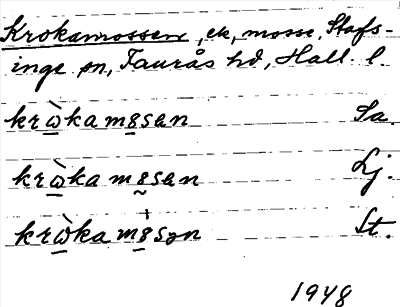 Krokamossen, ek, mosse, Stafs-
inge sn, Faurås hd, Hall. l.
krὼkam8sen Sa.
krὼkam8sen Lj.
krὼkam8sən St.
1948